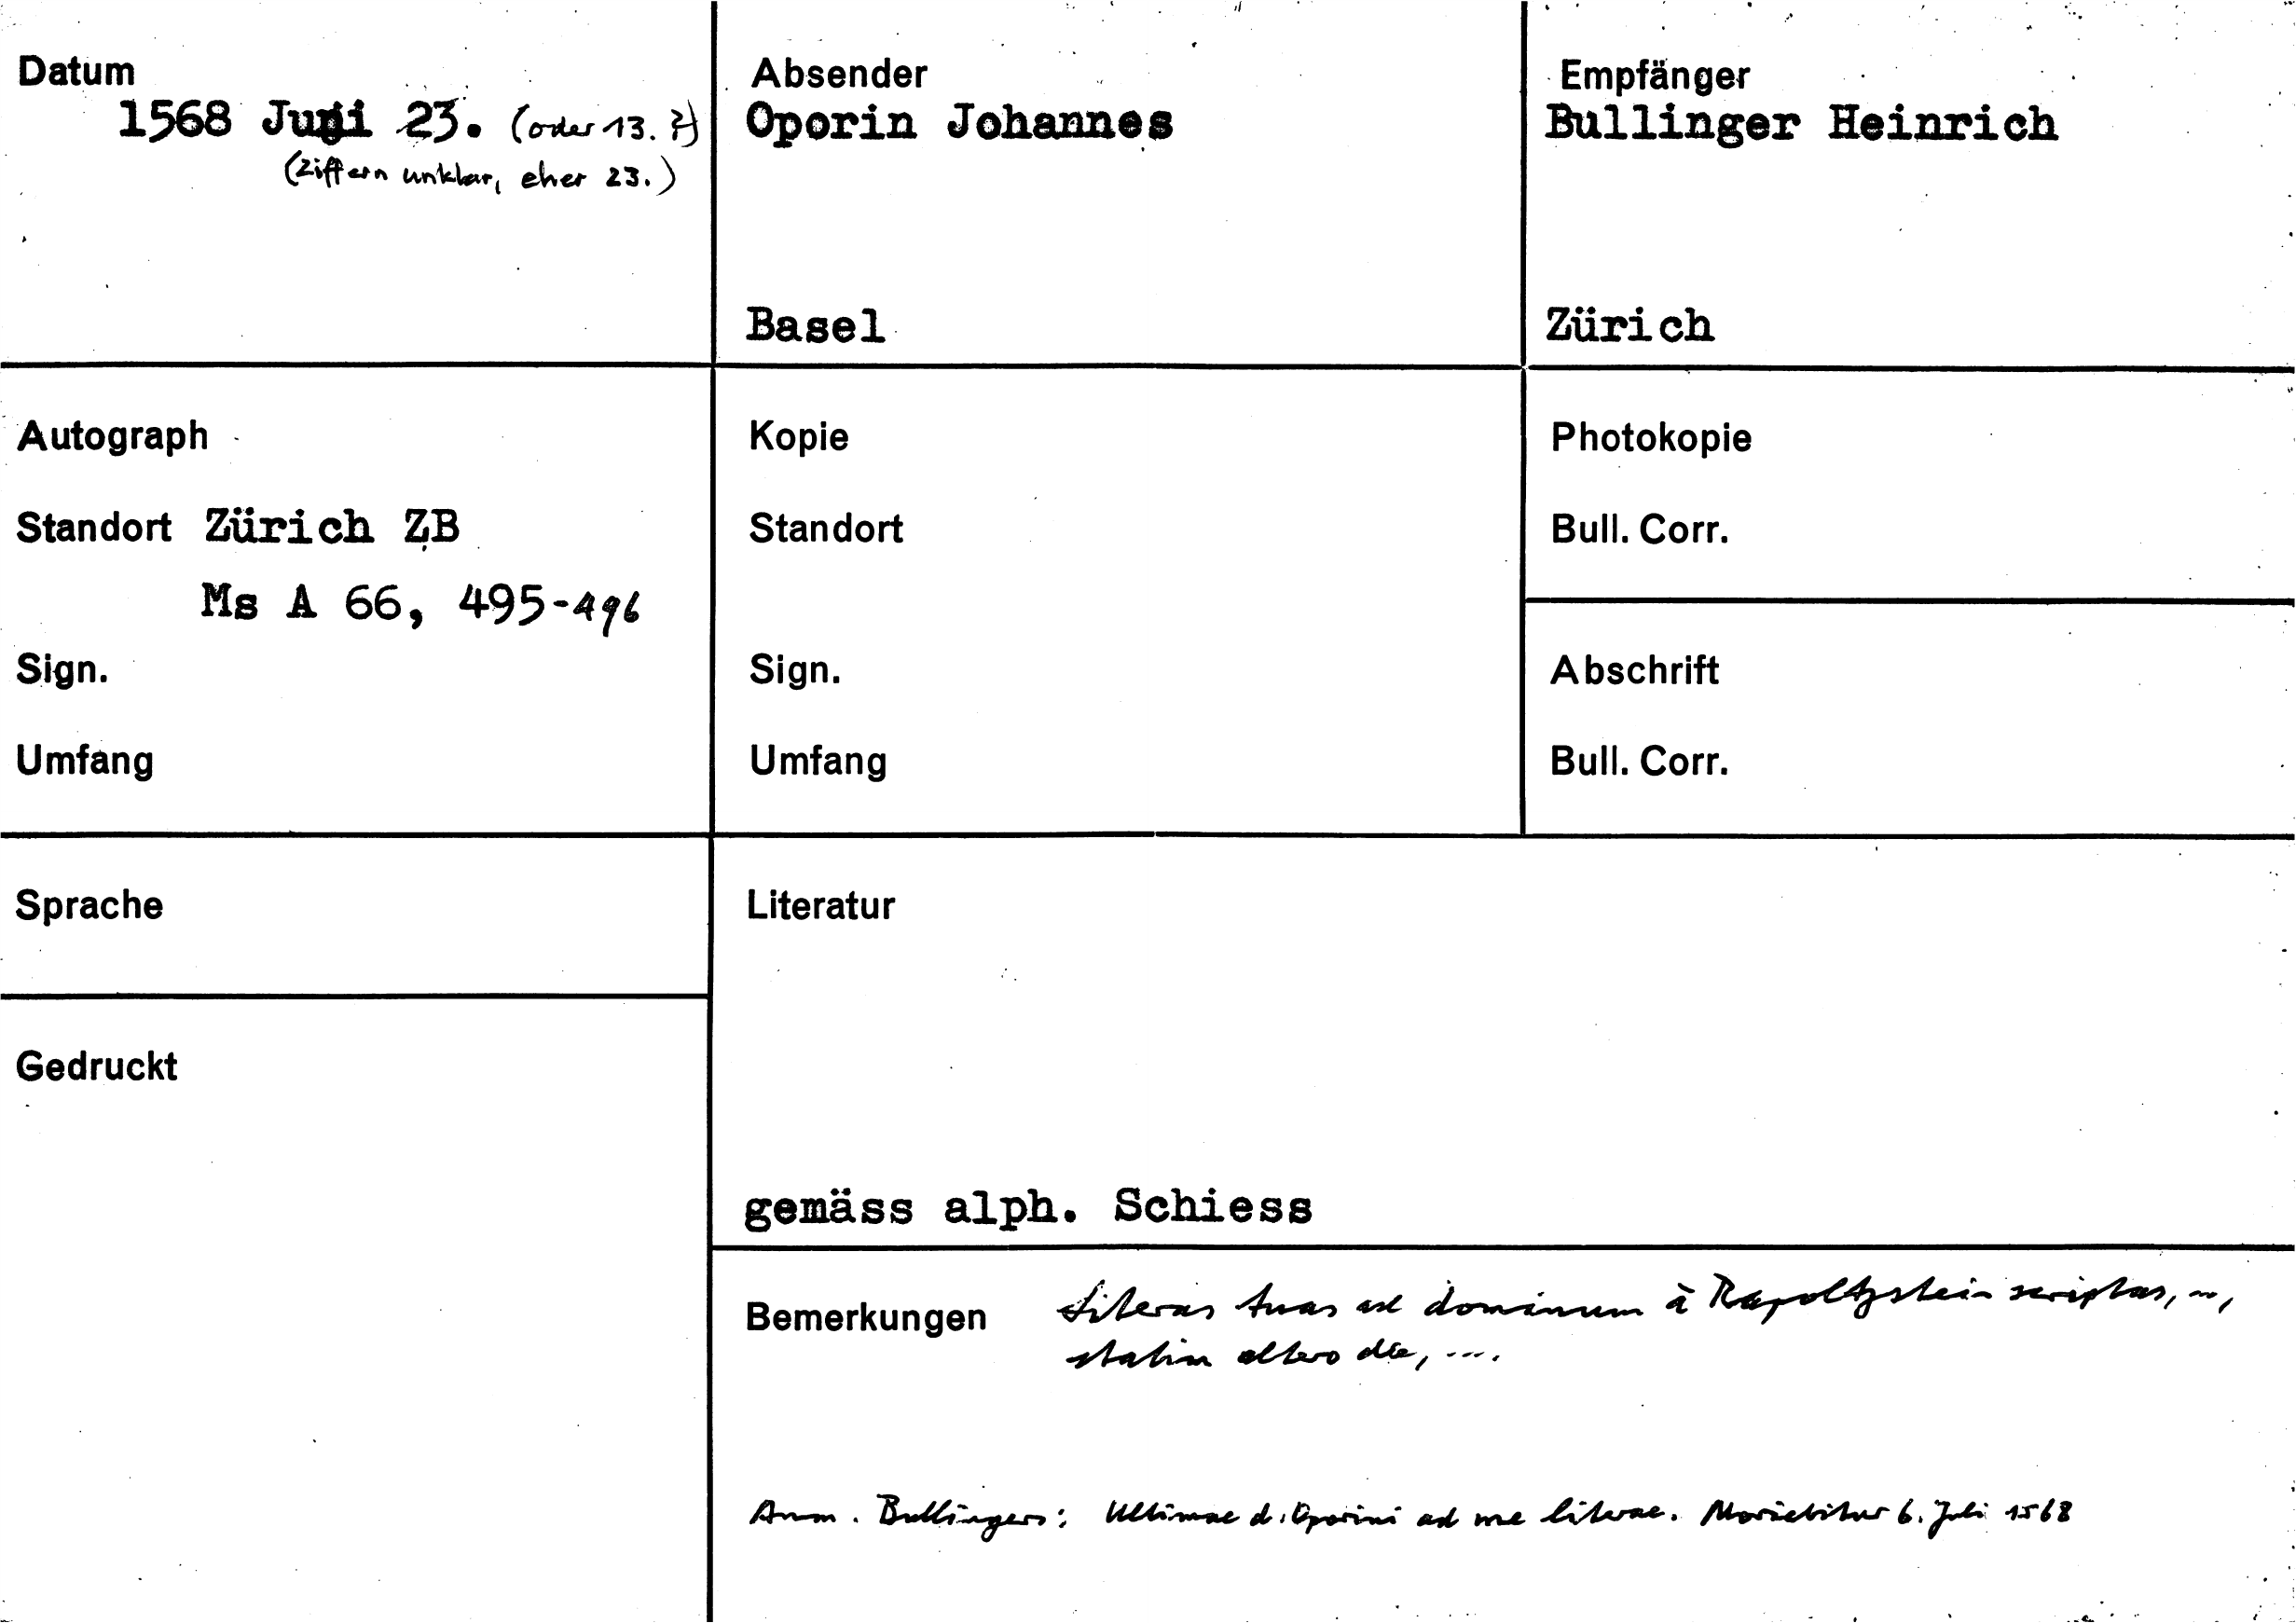 Datum
1568 Juni 23. (oder 13. ?)
(Ziffern unklar, eher 23.)
Absender
Oporin Johannes
Basel
Empfänger
Bullinger Heinrich
Zürich
Autograph
Standort Zürich ZB
Ms A 66, 495-496
Sign.
Umfang
Kopie
Standort
Sign.
Umfang
Photokopie
Bull. Corr.
Abschrift
Bull. Corr.
Sprache
Gedruckt
Literatur
gemäss alph. Schiess
Bemerkungen Literas tuas ad dominum à Rapoltzstein scriptas, ...,
statim altero die, ....
Anm. Bullingers: Ultimae d. Oporini ad me literae. Moriebitur 6. Juli 1568